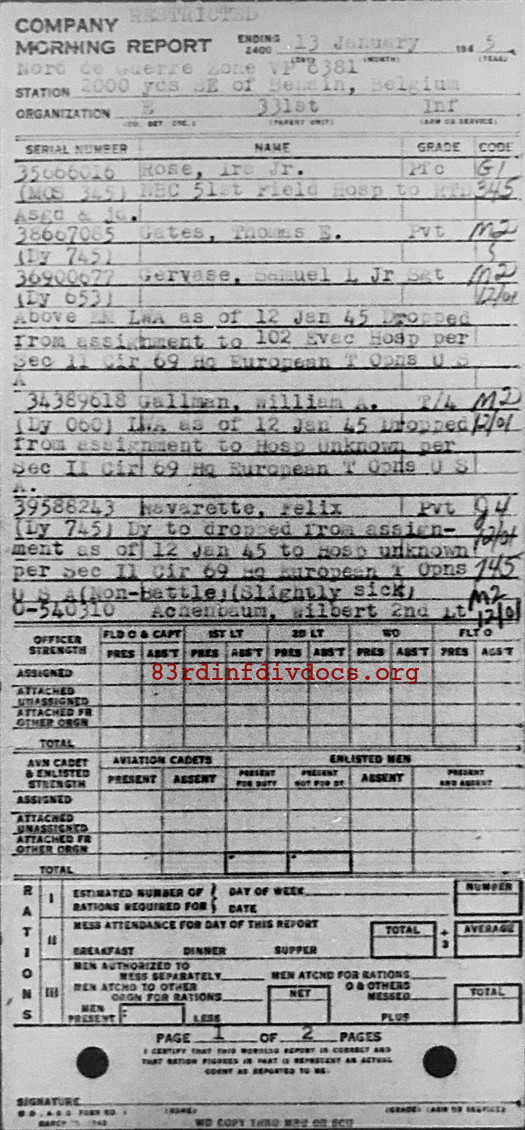 RESTRICTED
COMPANY
MORNING REPORT ENDING 2400 13 January 1945
(DATE) (MONTH) (YEAR)
Nord de Guerre Zone VP 6381
STATION 2000 yds SE of Belgium
ORGANIZATION E 331st Inf
(CO. DET. ETC.) (PARENT UNIT) (ARM OR SERVICE)
SERIAL NUMBER NAME GRADE CODE
35066016 Rose, Ira Jr. Pfc G1
(MOS 345) NBC 51st Field Hosp to RTD 345
Asgd & jd.
38667085 Gates, Thomas E. Pvt M2
(Dy 745)
36900677 Gervase, Samuel L Jr Sgt M2
(Dy 653) 12/01
Above EM LWA as of 12 Jan 45 Dropped
from assignment to 102 Evac Hosp per
Sec II Cir 69 Hq European T Opns U S
A
34389618 Gallman, William A. T/4 M2
(Dy 060) LWA as of 12 Jan 45 Dropped 12/01
from assignment to Hosp unknown per
Sec II Cir 69 Hq European T Opns U S
A.
39588243 Navarette, Felix Pvt G4
(Dy 745) Dy to dropped from assign- 12/01
ment as of 12 Jan 45 to Hosp unknown
per Sec II Cir 69 Hq European T Opns 745
U S A (Non-Battle) (Slightly sick) M2
O-540310 Achenbaum, Wilbert 2nd Lt 12/01
OFFICER STRENGTH FLD O & CAPT 1ST LT 2D LT WO FLT O
PRES ABS'T PRES ABS'T PRES ABS'T PRES ABS'T PRES ABS'T
ASSIGNED
83rdinfdivdocs.org
ATTACHED UNASSIGNED
ATTACHED FR OTHER ORGN
TOTAL
AVN CADET & ENLISTED STRENGTH AVIATION CADETS ENLISTED MEN
PRESENT ABSENT PRESENT FOR DUTY PRESENT NOT FOR DY ABSENT PRESENT AND ABSENT
ASSIGNED
ATTACHED UNASSIGNED
ATTACHED FR OTHER ORGN
TOTAL
RATIONS
I ESTIMATED NUMBER OF RATIONS REQUIRED FOR DAY OF WEEK DATE NUMBER
II MESS ATTENDANCE FOR DAY OF THIS REPORT TOTAL ÷ 3 AVERAGE
BREAKFAST DINNER SUPPER
III MEN AUTHORIZED TO MESS SEPARATELY MEN ATCHD FOR RATIONS
MEN ATCHD TO OTHER ORGN FOR RATIONS NET O & OTHERS MESSED TOTAL
MEN PRESENT LESS PLUS
PAGE 1 OF 2 PAGES
I CERTIFY THAT THIS MORNING REPORT IS CORRECT AND
THAT RATION FIGURES IN PART III REPRESENT AN ACTUAL
COUNT AS REPORTED TO ME:
SIGNATURE
W.D., A.G.O. FORM NO. 1 (NAME) (GRADE) (ARM OR SERVICE)
WD COPY THRU MRU OR SCU